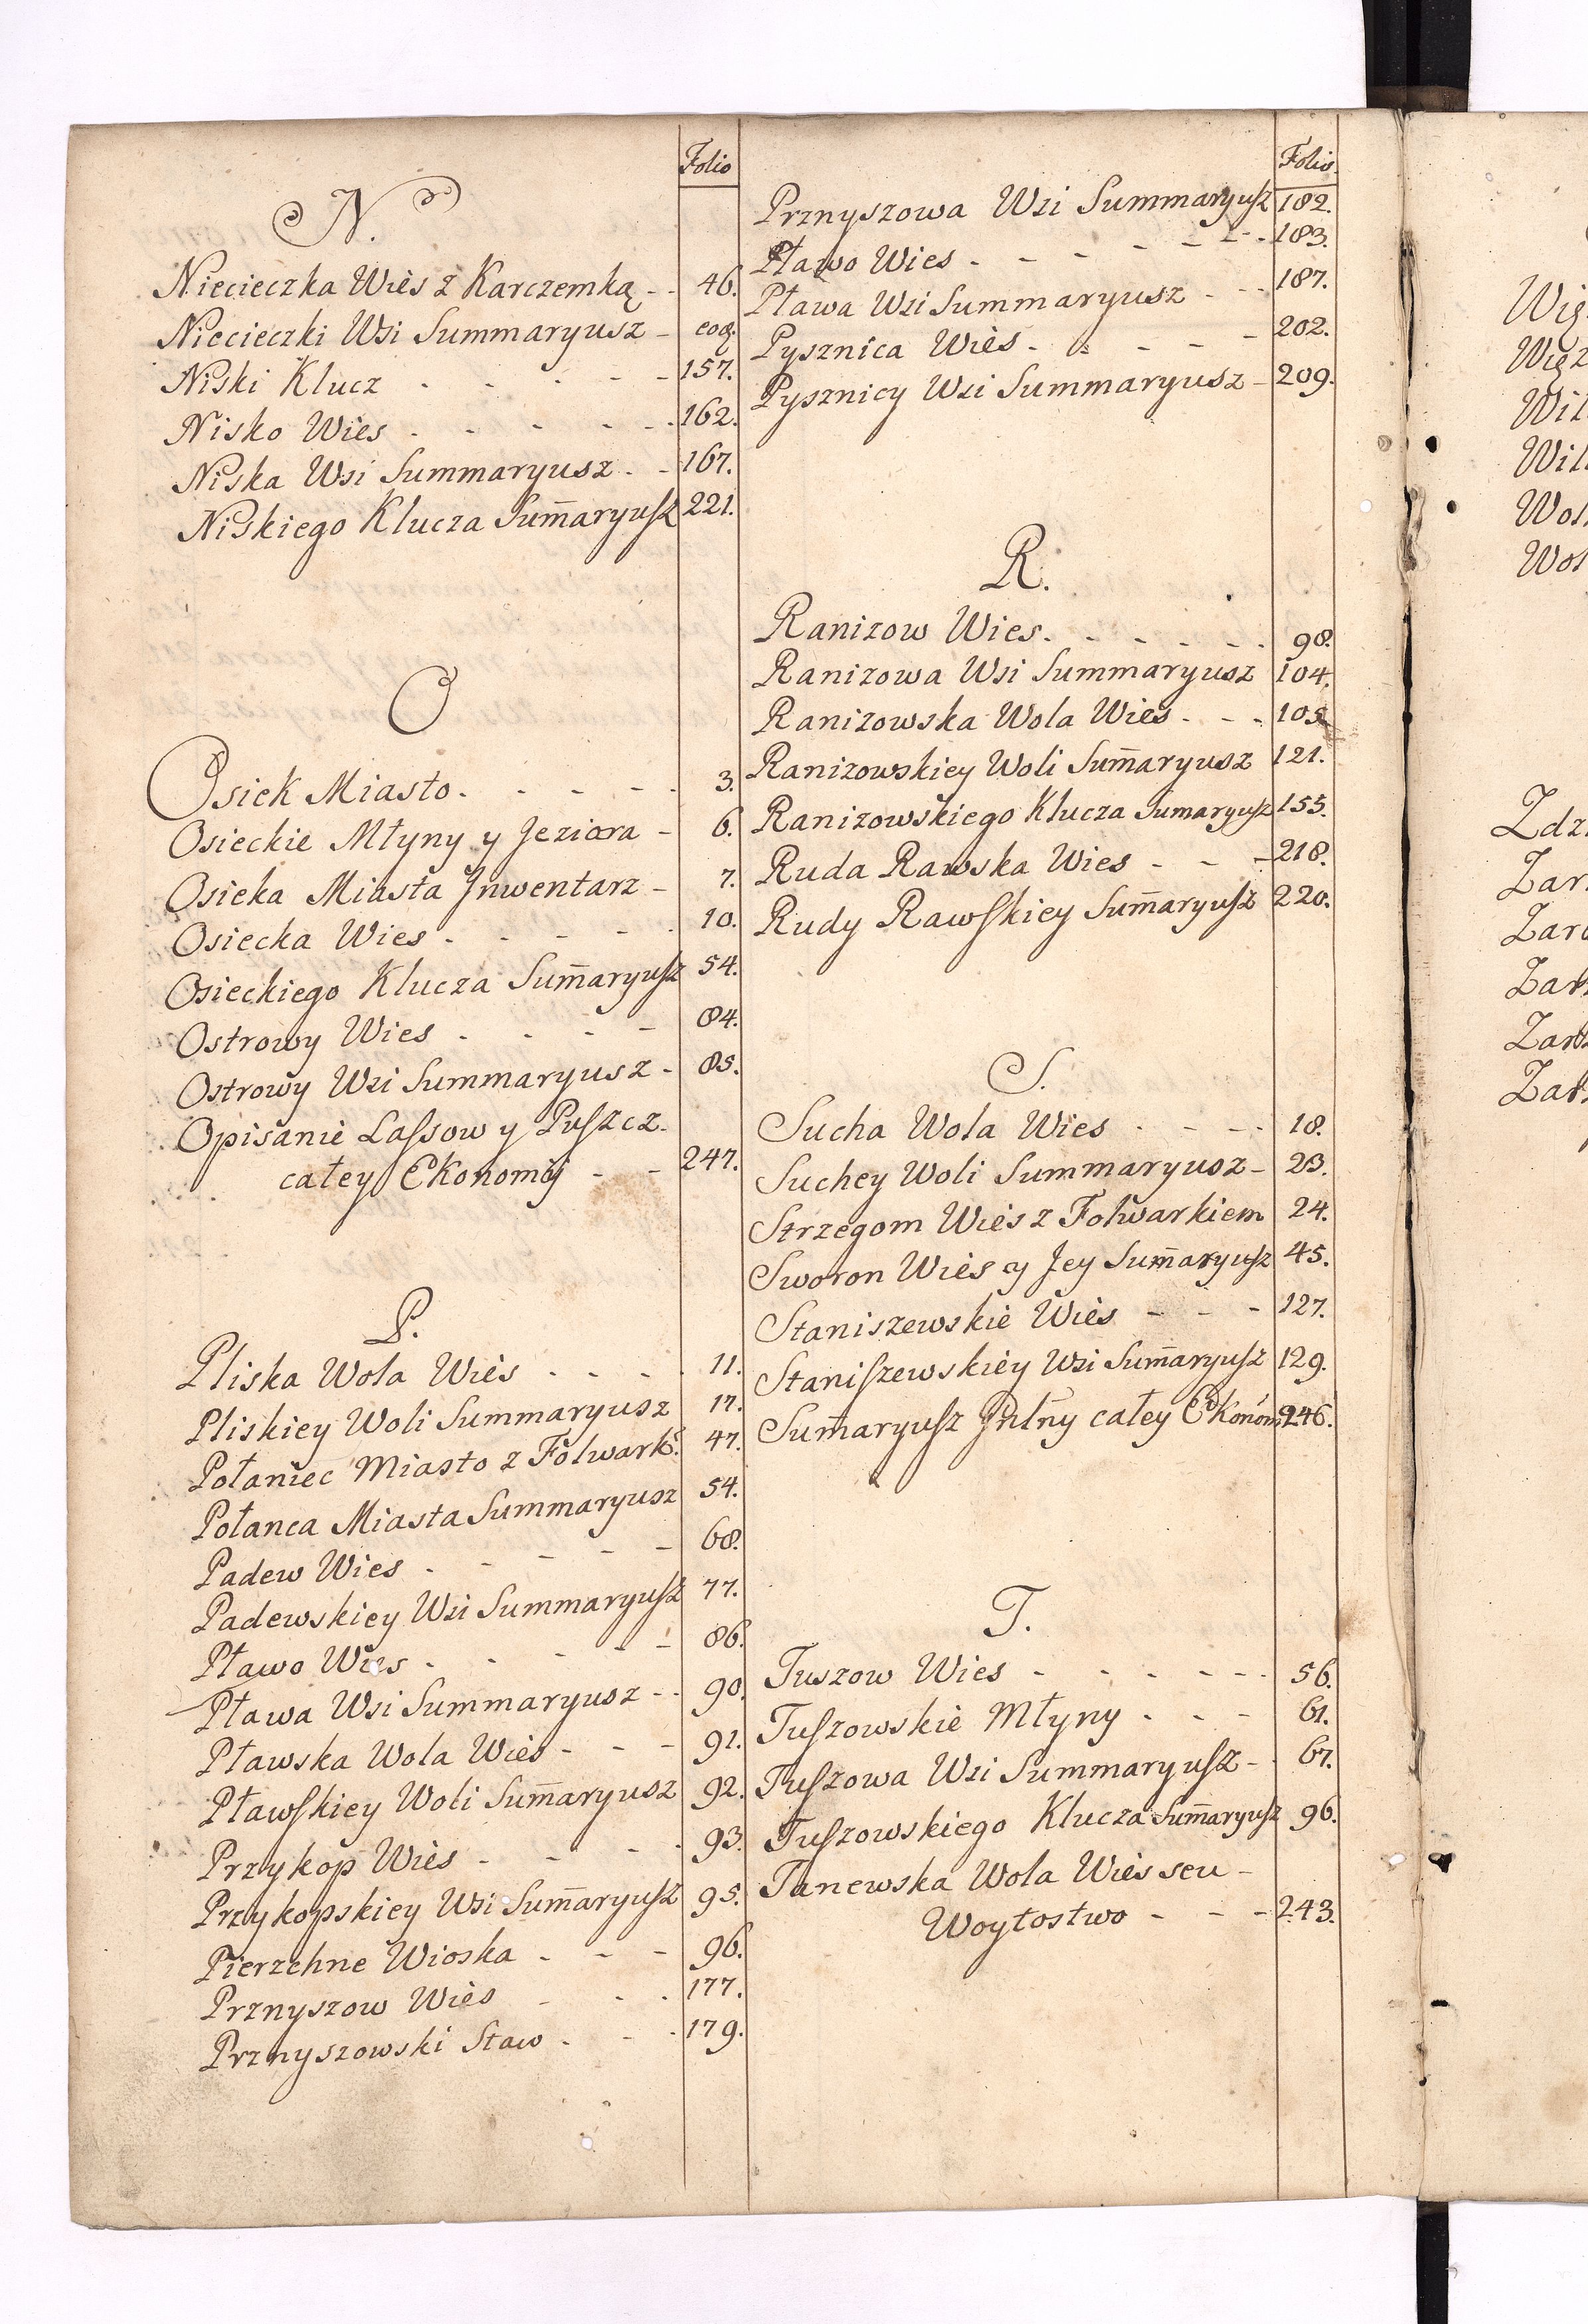 Folio
N.
Niecieczka Wies z Karczemką - - 46.
Niecieczki Wsi Summaryusz - eod.
Niski Klucz - - - - - 157.
Nisko Wies - - - - - 162.
Niska Wsi Summaryusz - - 167.
Niskiego Klucza Sum̄aryusz 221.
O
Osiek Miasto - - - - - 3.
Osieckie Młyny y Jeziora - 6.
Osieka Miasta Jnwentarz - 7.
Osiecka Wies - - - - - 10.
Osieckiego Klucza Sum̄aryusz 54.
Ostrowy Wies - - - - 84.
Ostrowy Wsi Summaryusz - 85.
Opisanie Lassow y Puszcz
całey Ekonomij - - 247.
P.
Pliska Wola Wies - - - - 11.
Pliskiey Woli Summaryusz 17.
Połaniec Miasto z Folwark: 47.
Połanca Miasta Summaryusz 54.
Padew Wies - - - - - 68.
Padewskiey Wsi Summaryusz 77.
Pławo Wies - - - - - 86.
Pława Wsi Summaryusz - - 90.
Pławska Wola Wies - - - 91.
Pławskiey Woli Sum̄aryusz 92.
Przykop Wies - - - - 93.
Przykopskiey Wsi Sum̄aryusz 95.
Pierzchne Wioska - - - 96.
Prznyszow Wies - - - 177.
Prznyszowski Staw - - - 179.
Folio.
Prznyszowa Wsi Summaryusz 182.
Pławo Wies - - - - - - - 183.
Pława Wsi Summaryusz - - - 187.
Pysznica Wies - - - - - 202.
Pysznicy Wsi Summaryusz - 209.
R.
Ranizow Wies. - - - - - - 98.
Ranizowa Wsi Summaryusz 104.
Ranizowska Wola Wies - - - 105.
Ranizowskiey Woli Sum̄aryusz 121.
Ranizowskiego Klucza Sumaryusz 155.
Ruda Rawska Wies - - - 218.
Rudy Rawskiey Sum̄aryusz 220.
S.
Sucha Wola Wies - - - - 18.
Suchey Woli Summaryusz - 23.
Strzegom Wies z Folwarkiem 24.
Sworon Wies y Jey Sum̄aryusz 45.
Staniszewskie Wies - - - 127.
Staniszewskiey Wsi Sum̄aryusz 129.
Sum̄aryusz Jntny całey Ekonom: 246.
T.
Tuszow Wies - - - - - - 56.
Tuszowskie Młyny - - - 61.
Tuszowa Wsi Summaryusz - 67.
Tuszowskiego Klucza Sum̄aryusz 96.
Tanewska Wola Wies seu -
Woytostwo - - - 243.